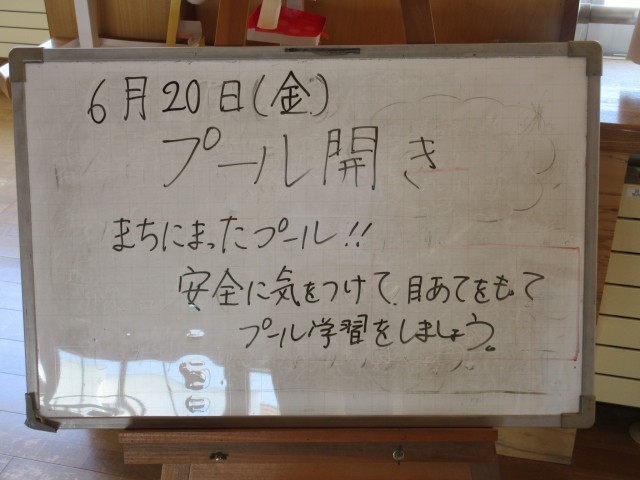 6月20日(金)
プール開き
まちにまったプール!!
安全に気をつけて、目あてをもって
プール学習をしましょう。